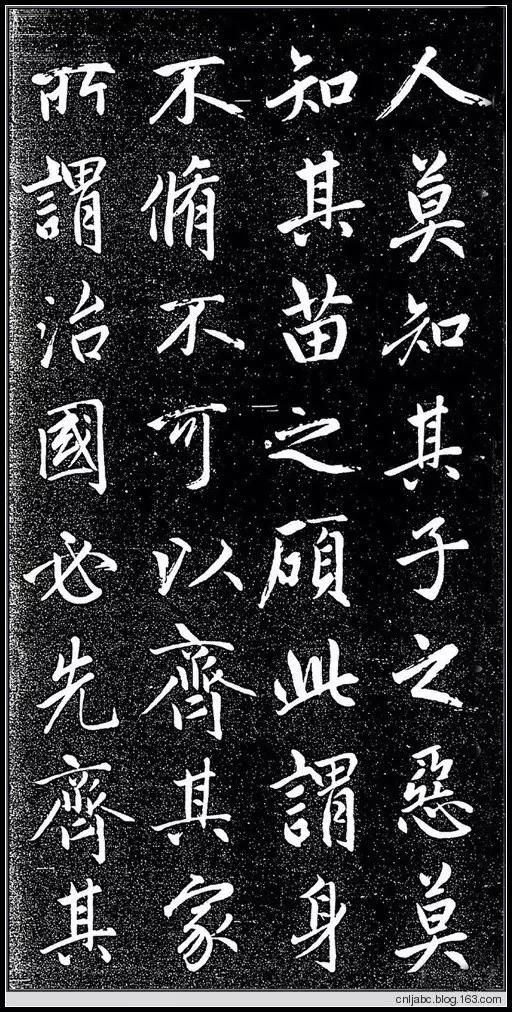 人莫知其子之惡莫
知其苗之碩此謂身
不脩不可以齊其家
所謂治國必先齊其
cnljabc.blog.163.com